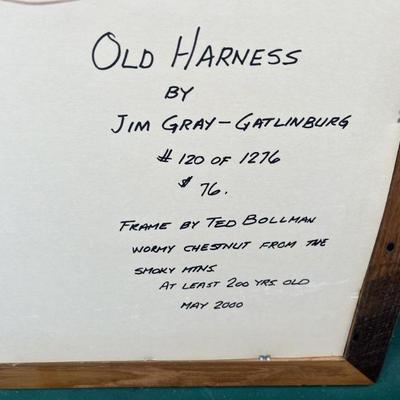 OLD HARNESS
BY
JIM GRAY - GATLINBURG
# 120 OF 1276
$ 76.
FRAME BY TED BOLLMAN
WORMY CHESTNUT FROM THE
SMOKY MTNS
AT LEAST 200 YRS OLD
MAY 2000